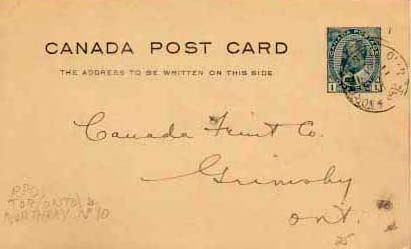 CANADA POST CARD
THE ADDRESS TO BE WRITTEN ON THIS SIDE
CANADA POSTAGE
1 1
Canada Fruit Co.
Grimsby
Ont.
RPO,
TORONTO &
NORTHBAY Nº 10
25